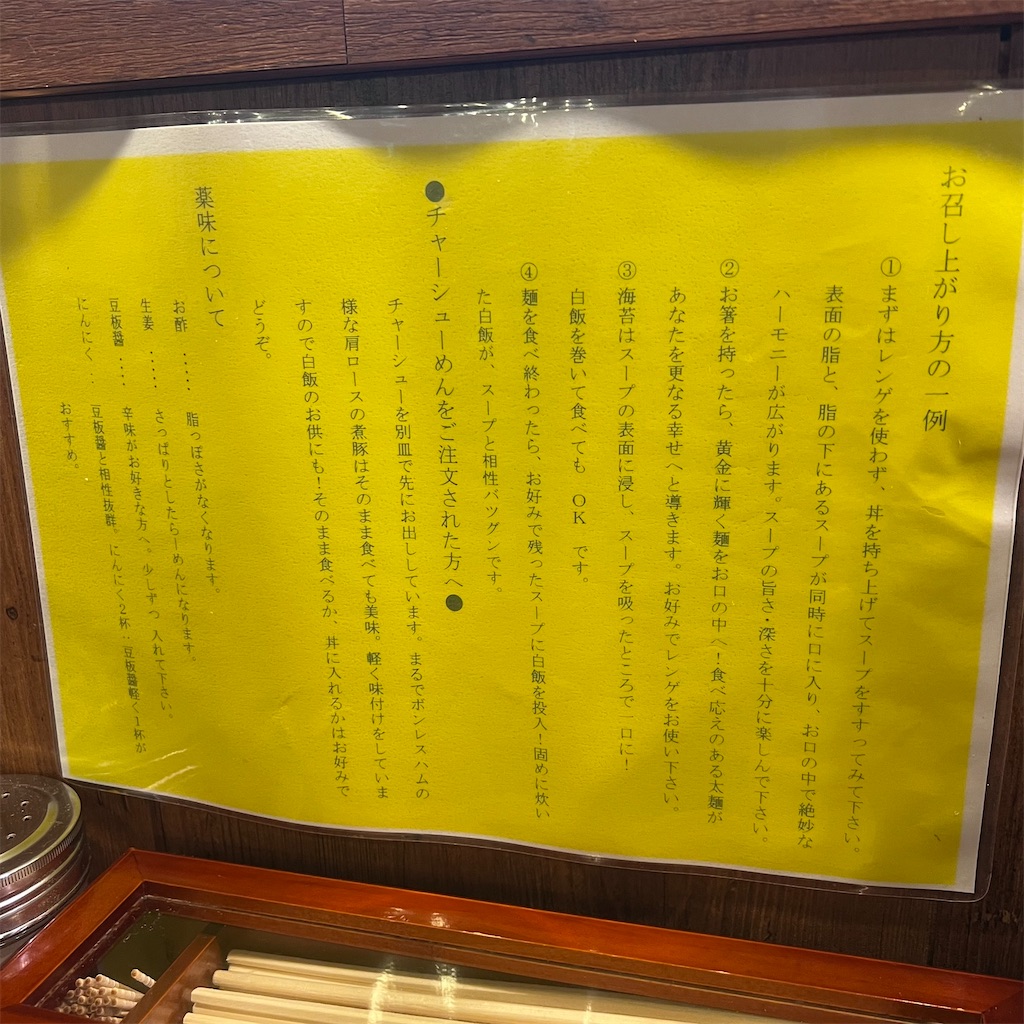 お召し上がり方の一例
①まずはレンゲを使わず、丼を持ち上げてスープをすすってみて下さい。
表面の脂と、脂の下にあるスープが同時に口に入り、お口の中で絶妙な
ハーモニーが広がります。スープの旨さ・深さを十分に楽しんで下さい。
②お箸を持ったら、黄金に輝く麺をお口の中へ！食べ応えのある太麺が
あなたを更なる幸せへと導きます。お好みでレンゲをお使い下さい。
③海苔はスープの表面に浸し、スープを吸ったところで一口に！
白飯を巻いて食べても OK です。
④麺を食べ終わったら、お好みで残ったスープに白飯を投入！固めに炊い
た白飯が、スープと相性バツグンです。
●チャーシューめんをご注文された方へ●
チャーシューを別皿で先にお出ししています。まるでボンレスハムの
様な肩ロースの煮豚はそのまま食べても美味。軽く味付けをしていま
すので白飯のお供にも！そのまま食べるか、丼に入れるかはお好みで
どうぞ。
薬味について
お酢 ‥‥‥ 脂っぽさがなくなります。
生姜 ‥‥‥ さっぱりとしたらーめんになります。
豆板醤 ‥‥ 辛味がお好きな方へ。少しずつ 入れて下さい。
にんにく‥ 豆板醤と相性抜群。にんにく2杯：豆板醤軽く1杯が
おすすめ。